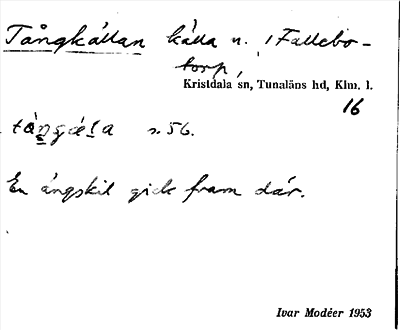 Tångkällan källa n. i Fallebo-
torp,
Kristdala sn, Tunaläns hd, Klm. l.
16
s. 56.
En ängskil gick fram där.
Ivar Modéer 1953